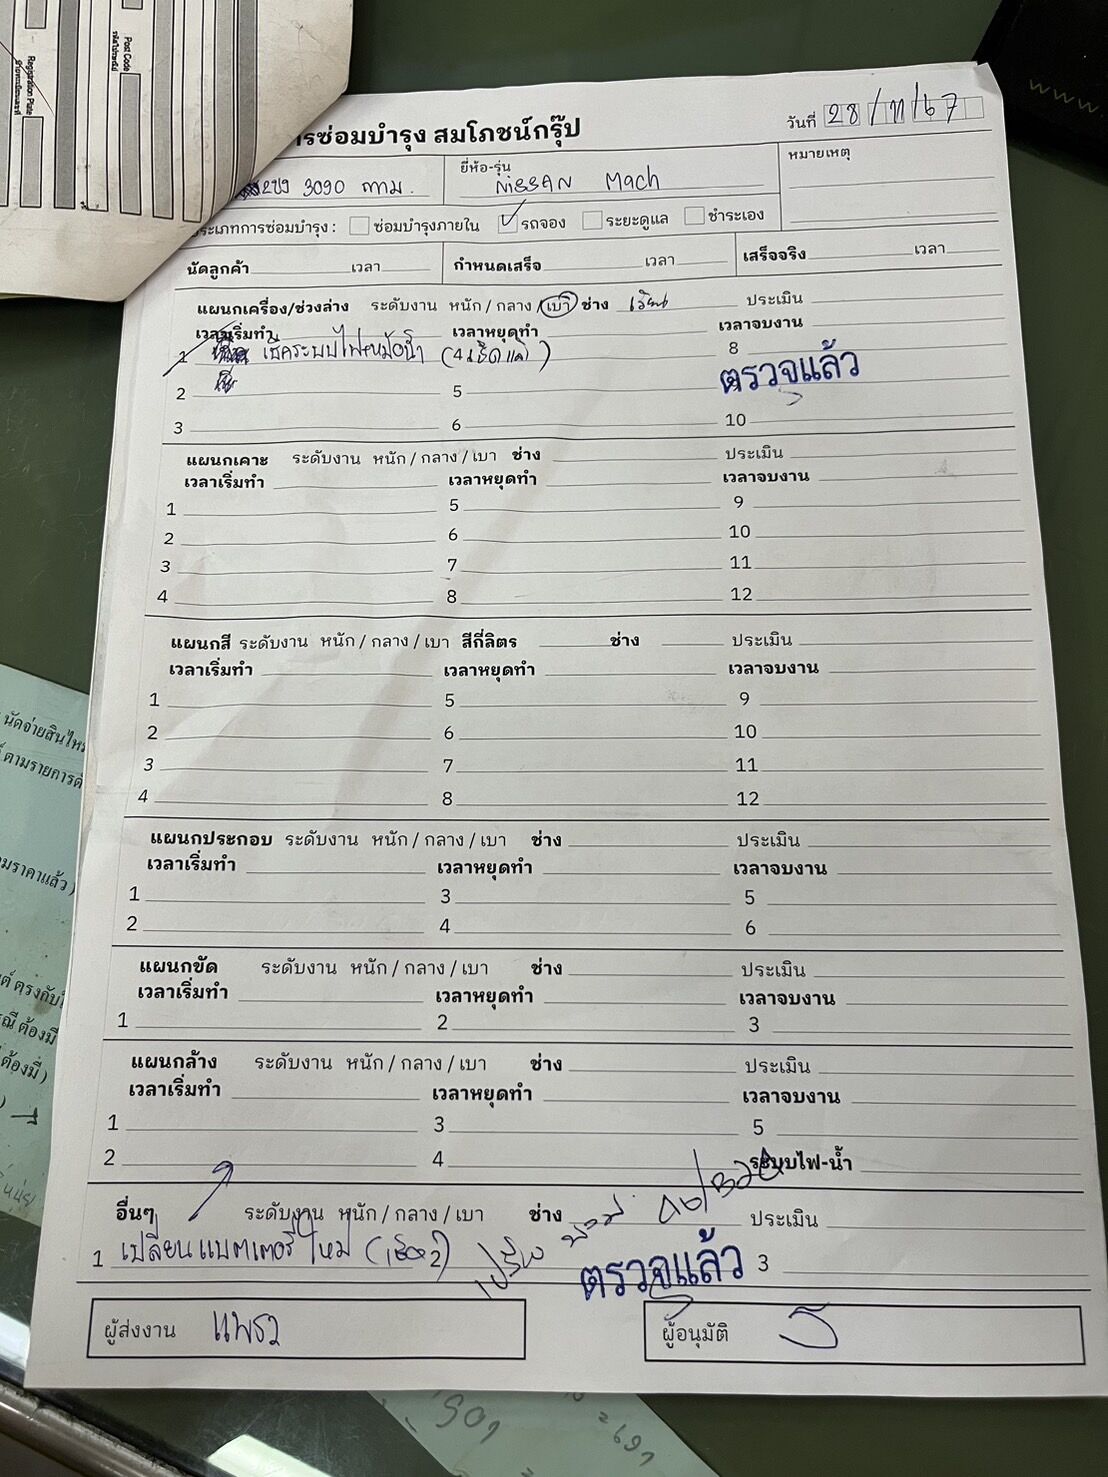 Post Code
รหัสไปรษณีย์
Registration Plate
การซ่อมบำรุง สมโภชน์กรุ๊ป
วันที่ 28/11/67
3090 กทม.
ยี่ห้อ-รุ่น NISSAN Mach
หมายเหตุ
ประเภทการซ่อมบำรุง : ซ่อมบำรุงภายใน รถจอง ระยะดูแล ชำระเอง
นัดลูกค้า เวลา กำหนดเสร็จ เวลา เสร็จจริง เวลา
แผนกเครื่อง/ช่วงล่าง ระดับงาน หนัก / กลาง / เบา ช่าง ประเมิน
เวลาเริ่มทำ เวลาหยุดทำ เวลาจบงาน
1 เช็คระบบไฟหม้อน้ำ 4 8
ตรวจแล้ว
2 5
3 6 10
แผนกเคาะ ระดับงาน หนัก / กลาง / เบา ช่าง ประเมิน
เวลาเริ่มทำ เวลาหยุดทำ เวลาจบงาน
1 5 9
2 6 10
3 7 11
4 8 12
แผนกสี ระดับงาน หนัก / กลาง / เบา สีกี่ลิตร ช่าง ประเมิน
เวลาเริ่มทำ เวลาหยุดทำ เวลาจบงาน
1 5 9
2 6 10
3 7 11
4 8 12
แผนกประกอบ ระดับงาน หนัก / กลาง / เบา ช่าง ประเมิน
เวลาเริ่มทำ เวลาหยุดทำ เวลาจบงาน
1 3 5
2 4 6
แผนกขัด ระดับงาน หนัก / กลาง / เบา ช่าง ประเมิน
เวลาเริ่มทำ เวลาหยุดทำ เวลาจบงาน
1 2 3
แผนกล้าง ระดับงาน หนัก / กลาง / เบา ช่าง ประเมิน
เวลาเริ่มทำ เวลาหยุดทำ เวลาจบงาน
1 3 5
2 4 ระบบไฟ-น้ำ
อื่นๆ ระดับงาน หนัก / กลาง / เบา ช่าง ประเมิน
1 เปลี่ยนแบตเตอรี่ใหม่ 3
ตรวจแล้ว
ผู้ส่งงาน แพรว
ผู้อนุมัติ
นัดจ่ายสินไหม
ตามรายการ
ราคาแล้ว )
ต้องมี
ต้องมี )